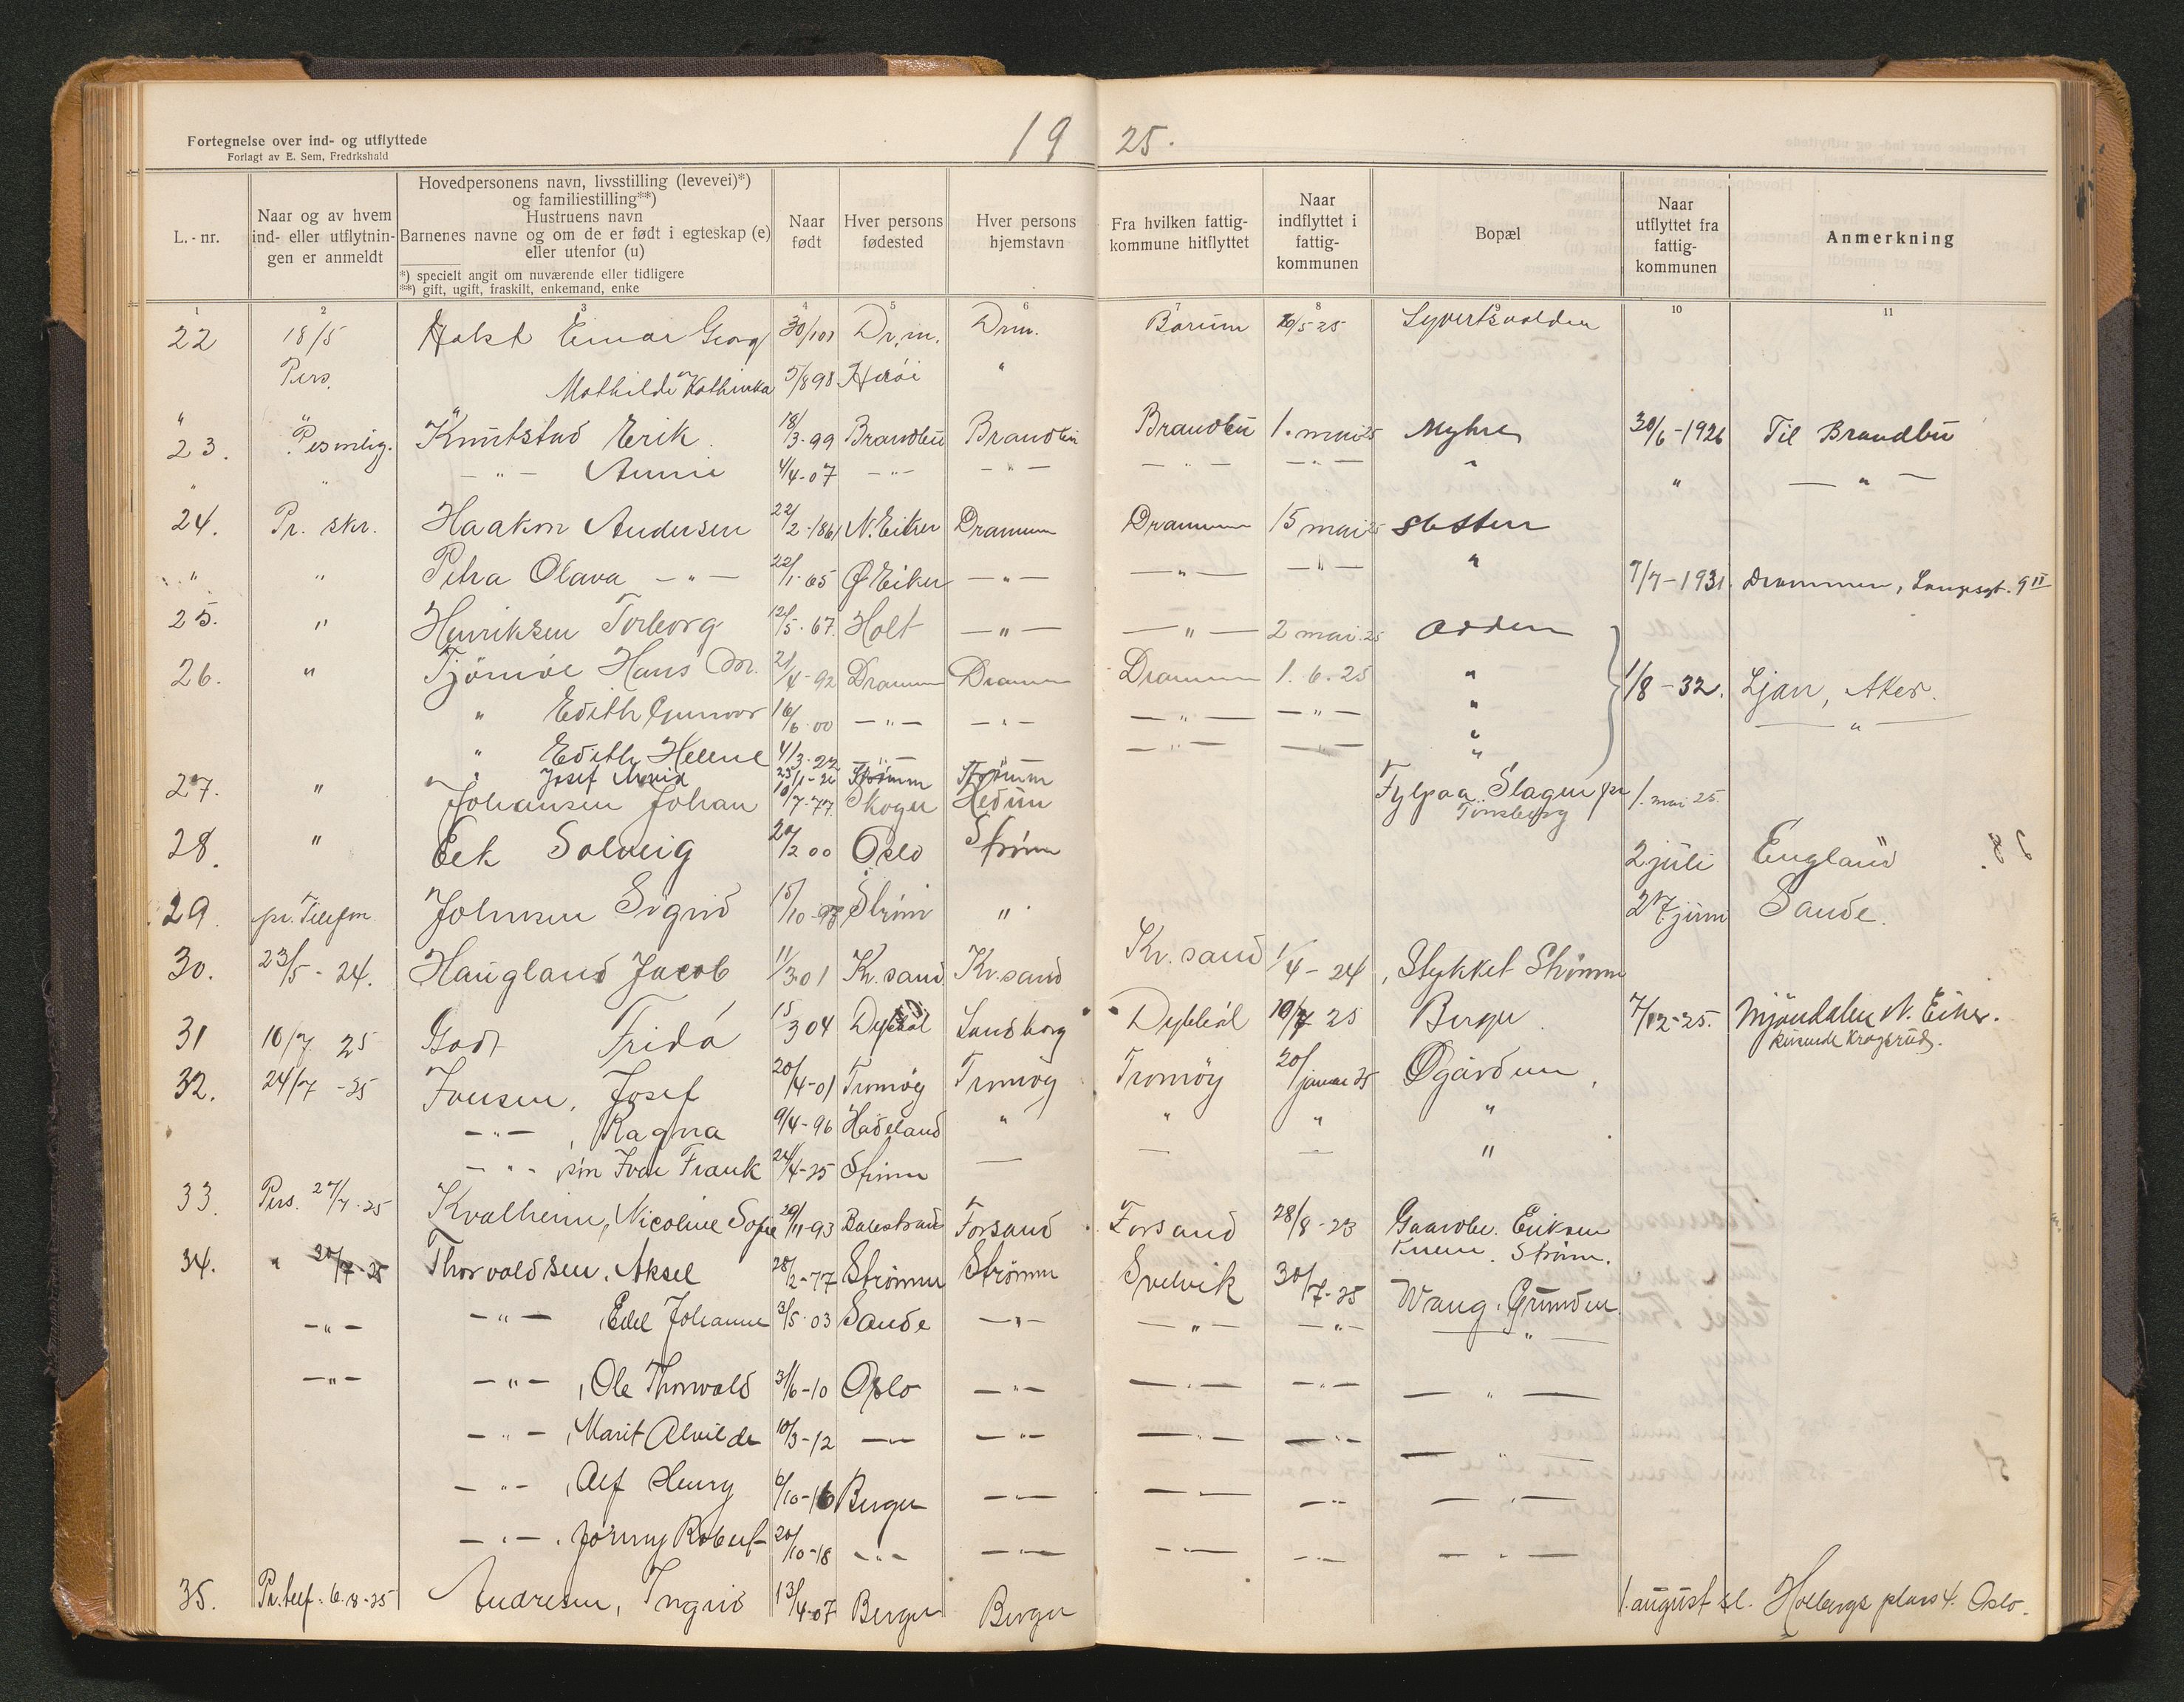 Fortegnelse over ind- og utflyttede
Forlagt av E. Sem, Fredrkshald
19 25.
L.-nr.
Naar og av hvem ind- eller utflytnin-gen er anmeldt
Hovedpersonens navn, livsstilling (levevei)*)
og familiestilling**)
Hustruens navn
Barnenes navne og om de er født i egteskap (e)
eller utenfor (u)
*) specielt angit om nuværende eller tidligere
**) gift, ugift, fraskilt, enkemand, enke
Naar født
Hver persons fødested
Hver persons hjemstavn
Fra hvilken fattig-kommune hitflyttet
Naar indflyttet i fattig-kommunen
Bopæl
Naar utflyttet fra fattig-kommunen
Anmerkning
1 2 3 4 5 6 7 8 9 10 11
22 18/5 Holst Einar Georg 30/101 Dr.m. Drm. Bærum 5 25
Pers. Mathilde Kathinka 5/898 Herøi "
23. Personlig. Knutstad Erik. 18/3-99 Brandbu Brandbu Brandbu 1. mai 25 Myhre 30/6-1926 Til Brandbu
" " - " - Anni 4/4-07 - " - - " - - " - - " - " " - " -
24. Pr. skr. Haakon Andersen 22/2-1861 N. Eiker Drammen Drammen 15 mai 25 Sletten
" " Petra Olava - " - 22/1-65 Ø Eiker - " - - " - - " - " 7/7-1931. Drammen, Langesgt. 9 II
25. " Henriksen Torborg 12/5-67. Holt - " - - " - 2 mai. 25 Odden
26. " Tjømøe Hans M. 21/4-92 Drammen Drammen Drammen 1.6.25 " 1/8-32. Ljan, Aker.
" Edith Gunvor 16/6.00 - " - - " - - " - - " - " - " -
" Edith Helene 4/3-22 - " - - " - - " - "
" Josef Arvid 25/1-26 Strømm Strømm "
27. " Johansen Johan 10/7-77. Skoger Hedrum Fylpaa Slagen pr Tønsberg 1. mai 25.
28. " Eek Solveig 2 00 Oslo Strømm 2 juli England
29. pr. Telefon Johnsen Sigrid 15/10-98 Strøm " 27. juni Sande.
30. 23/5-24. Haugland Jacob 11/3 01 Kr. sand Kr. sand Kr. sand 1/4-24 Stykket Strømm
31 10/7 25 Godt Frida 15/3 04 Dybbøl Sandborg Dybbøl 10/7 25 Berger 7/12-25. Mjøndalen N. Eiker.
Kragsrud.
32. 24/7-25 Ivensen, Josef 20/4-01 Tromøy Tromøy Tromøy 20/januar 25 Øgården
- " - , Ragna 9/4-96 Hadeland " " " "
- " - søn Ivar Frank 24/4-25 Strømm - - - "
33. Pers. 27/7-25 Kvalheim, Nicoline Sofie 29/11-93 Balestrand Forsand Forsand 28/8-23 Gaardbr. Eriksen
Knem. Strømm.
34. " 30/7-25 Thorvaldsen. Aksel 28/2-77 Strømm Strømm Svelvik 30/7-25 Wang. Grunden.
- " - - " - , Edel Johanne 3/5-03 Sande - " - - " - - " - - " -
- " - - " - , Ole Thorvald 31/6-10 Oslo - " - - " - - " - - " -
- " - , Marit Alvilde 10/3-12 - " - - " - - " - - " - - " -
- " - , Alf Henry 6/10-16 Berger - " - - " - - " - - " -
- " - , Jonny Robert 20/10-18 - " - - " - - " - - " - - " -
35. Pr. telf. 6.8-25 Andresen, Ingrid 13/4-07 Berger Berger 1. august sl. Holbergs plass 4. Oslo.